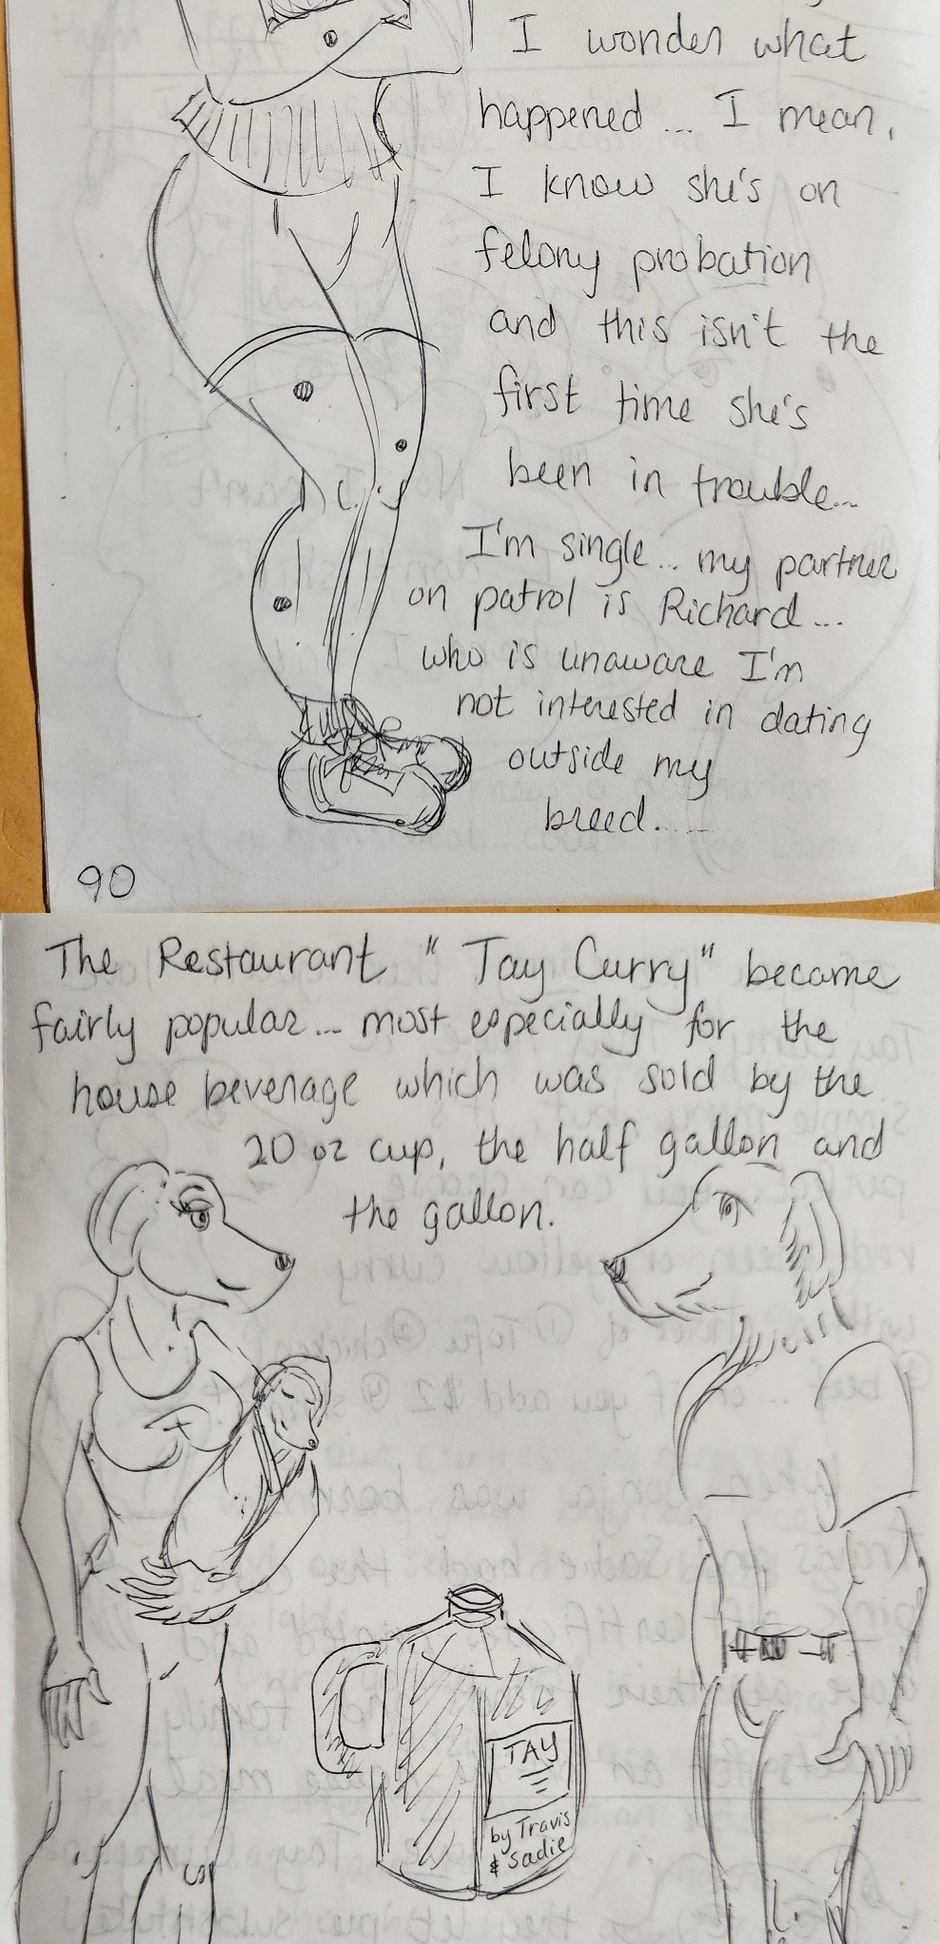 I wonder what
happened... I mean,
I know she's on
felony probation
and this isn't the
first time she's
been in trouble...
I'm single... my partner
on patrol is Richard...
who is unaware I'm
not interested in dating
outside my
breed.....
90
The Restaurant "Tay Curry" became
fairly popular... most especially for the
house beverage which was sold by the
20 oz cup, the half gallon and
the gallon.
TAY
by Travis
& Sadie